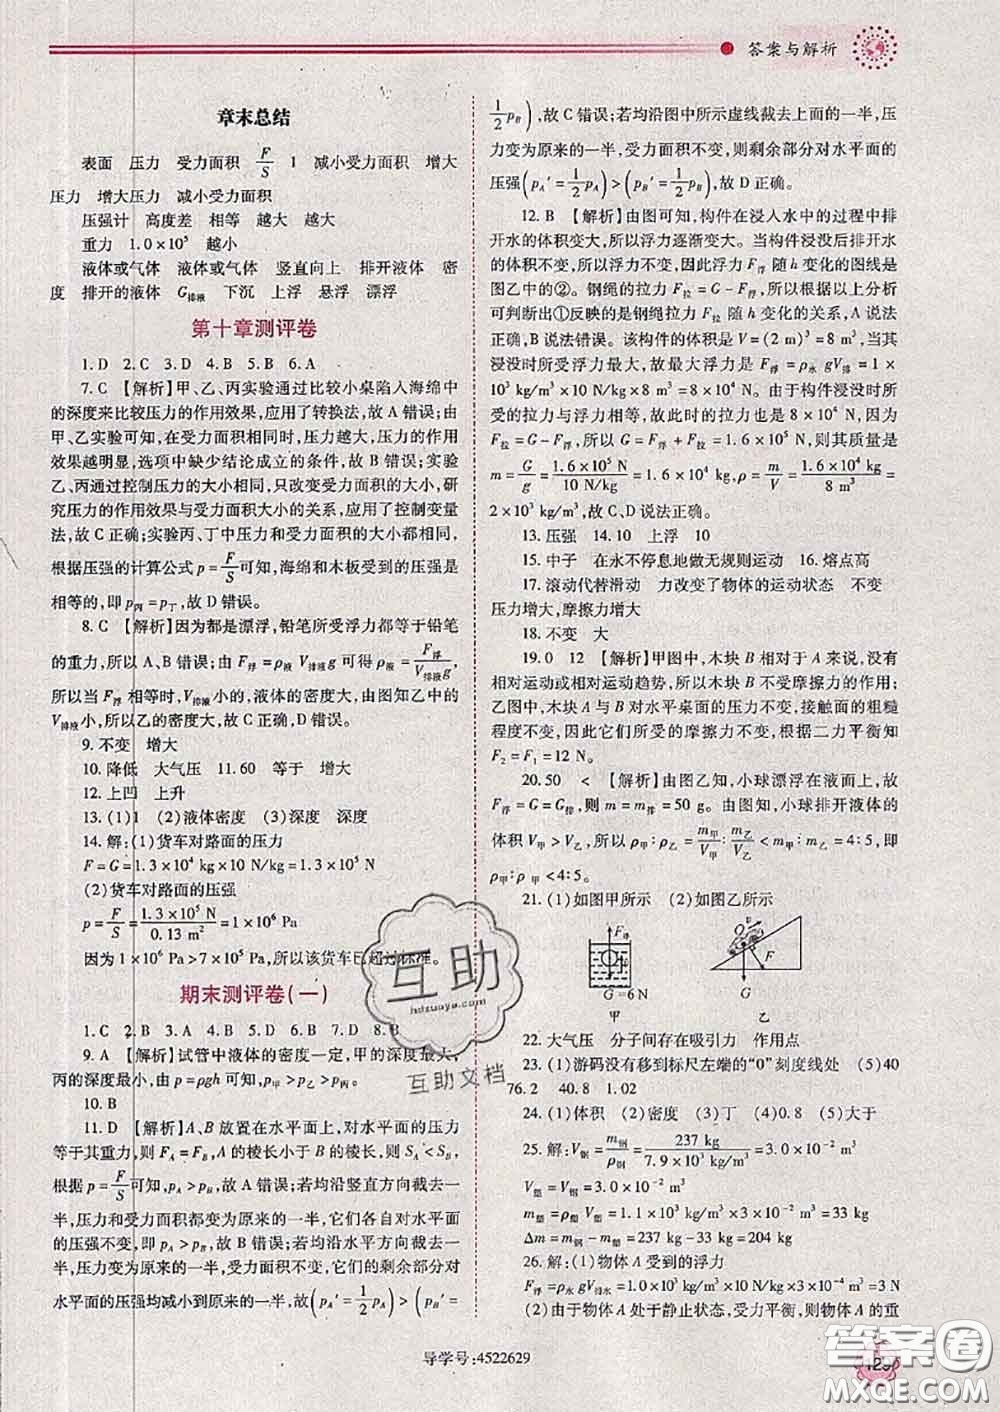 答案与解析
章末总结
表面 压力 受力面积 F/S 1 减小受力面积 增大
压力 增大压力 减小受力面积
压强计 高度差 相等 越大 越大
重力 1.0×10⁵ 越小
液体或气体 液体或气体 竖直向上 排开液体 密
度 排开的液体 G排液 下沉 上浮 悬浮 漂浮
第十章测评卷
1.D 2.C 3.D 4.B 5.B 6.A
7.C 【解析】甲、乙、丙实验通过比较小桌陷入海绵中
的深度来比较压力的作用效果,应用了转换法,故A错误;由
甲、乙实验可知,在受力面积相同时,压力越大,压力的作用
效果越明显,选项中缺少结论成立的条件,故B错误;实验
乙、丙通过控制压力的大小相等,只改变受力面积的大小,研
究压力的作用效果与受力面积大小的关系,应用了控制变量
法,故C正确;实验丙、丁中压力和受力面积的大小都相同,
根据压强的计算公式p=F/S可知,海绵和木板受到的压强是
相等的,即p丙=p丁,故D错误。
8.C 【解析】因为都是漂浮,铅笔所受浮力都等于铅笔
的重力,所以A、B错误;由F浮=ρ液 V排液g可得ρ液=F浮/V排液g,
所以当F浮相等时,V排液小的,液体的密度大,由图知乙中的
V排液小,所以乙的密度大,故C正确,D错误。
9.不变 增大
10.降低 大气压 11.60 等于 增大
12.上凹 上升
13.(1)1 (2)液体密度 (3)深度 深度
14.解:(1)货车对路面的压力
F=G=1.3×10⁴ kg×10 N/kg=1.3×10⁵ N
(2)货车对路面的压强
p=F/S=1.3×10⁵ N/0.13 m²=1×10⁶ Pa
因为1×10⁶ Pa>7×10⁵ Pa,所以该货车已超过标准。
期末测评卷(一)
1.C 2.B 3.A 4.C 5.D 6.B 7.D 8.B
9.A 【解析】试管中液体的密度一定,甲的深度最大,
丙的深度最小,由p=ρgh可知,p甲>p乙>p丙。
10.B
11.D 【解析】A、B放置在水平面上,对水平面的压力
等于其重力,则FA=FB,A的棱长小于B的棱长,则SA<SB,
根据p=F/S可知,pA>pB,故A错误;若均沿竖直方向截去一
半,压力和受力面积都变为原来的一半,它们各自对水平面
的压强不变,即pA>pB,故B错误;若均沿水平方向截去一
半,压力变为原来的一半,受力面积不变,它们的剩余部分对
水平面的压强均减小到原来的一半,故(pA′=1/2pA)>(pB′=
1/2pB),故C错误;若均沿图中所示虚线截去上面的一半,压
力变为原来的一半,受力面积不变,则剩余部分对水平面的
压强(pA′=1/2pA)>(pB′=1/2pB),故D正确。
12.B 【解析】由图可知,构件在浸入水中的过程中排
开水的体积变大,所以浮力逐渐变大。当构件浸没后排开水
的体积不变,所以浮力不变,因此浮力F浮随h变化的图线是
图乙中的②。钢绳的拉力F拉=G-F浮,所以根据以上分析
可判断出①反映的是钢绳拉力F拉随h变化的关系,A说法
正确,B说法错误。该构件的体积V=(2 m)³=8 m³,当其
浸没时所受浮力最大,故最大浮力是F浮=ρ水 gV排=1×
10³ kg/m³×10 N/kg×8 m³=8×10⁴ N。由于构件浸没时所
受的拉力与浮力相等,故此时的拉力也是8×10⁴ N,因为
F拉=G-F浮,所以G=F浮+F拉=1.6×10⁵ N,则其质量是
m=G/g=1.6×10⁵ N/10 N/kg=1.6×10⁴ kg,其密度ρ=m/V=1.6×10⁴ kg/8 m³=
2×10³ kg/m³,故C、D说法正确。
13.压强 14.10 上浮 10
15.中子 在永不停息地做无规则运动 16.熔点高
17.滚动代替滑动 力改变了物体的运动状态 不变
压力增大,摩擦力增大
18.不变 大
19.0 12 【解析】甲图中,木块B相对于A来说,没有
相对运动或相对运动趋势,所以木块B不受摩擦力的作用;
乙图中,木块A与B对水平桌面的压力不变,接触面的粗糙
程度不变,因此它们所受的摩擦力不变,根据二力平衡知
F₂=F₁=12 N。
20.50 < 【解析】由图乙知,小球漂浮在液面上,故
F浮=G=G排,则m=m排=50 g。由图知,小球排开液体的
体积V甲>V乙,所以ρ甲:ρ乙=m甲/V甲:m乙/V乙<m甲:m乙=4:5,即
ρ甲:ρ甲<4:5。
21.(1)如图甲所示 (2)如图乙所示
F浮
G=6 N
甲
v
O
F
G
乙
22.大气压 分子间存在吸引力 作用点
23.(1)游码没有移到标尺左端的“0”刻度线处 (5)40
76.2 40.8 1.02
24.(1)体积 (2)密度 (3)丁 (4)0.8 (5)大于
25.解:V钢=m钢/ρ钢=237 kg/7.9×10³ kg/m³=3.0×10⁻² m³
V塑=V钢=3.0×10⁻² m³
m塑=ρ塑 V塑=1.1×10³ kg/m³×3×10⁻² m³=33 kg
Δm=m钢-m塑=237 kg-33 kg=204 kg
26.解:(1)物体A受到的浮力
F浮=ρ水 gV排水=1.0×10³ kg/m³×10 N/kg×3×10⁻⁴ m³=3 N
(2)由于物体A处于静止状态,受力平衡,则物体A的重
导学号:4522629
互助
hdzuoye.com
互助文档
答案圈
MXQE.COM